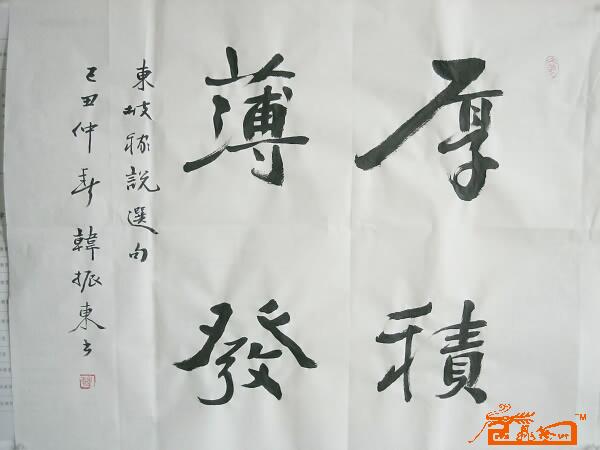 厚積
薄發
東坡稼說選句
己丑仲春韓振東書